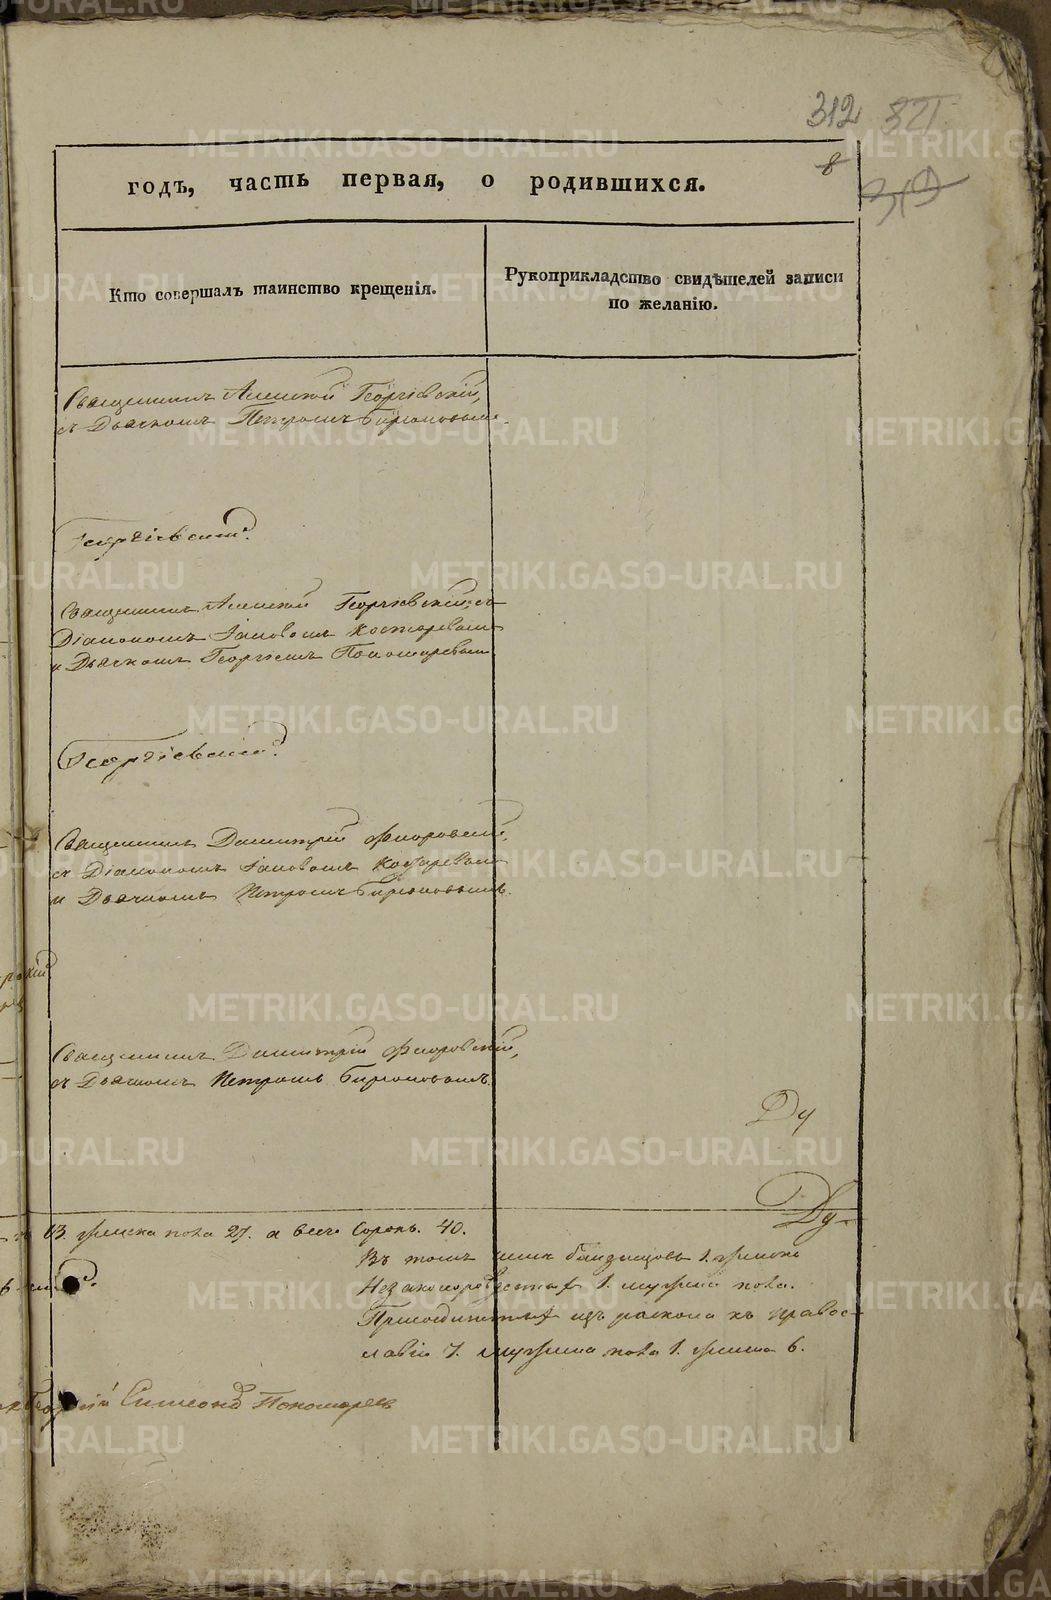 312 321
8
319
годъ, часть первая, о родившихся.
Кто совершалъ таинство крещенія.
Рукоприкладство свидѣтелей записи
по желанію.
Священникъ Алексѣй Георгіевскій,
съ Дьячкомъ Петромъ Бирюковымъ.
Георгіевскій.
Священникъ Алексѣй Георгіевскій съ
Діакономъ Іаковомъ Костаревымъ
и Дьячкомъ Георгіемъ Пономаревымъ
Георгіевскій.
Священникъ Димитрій Флоровскій,
съ Діакономъ Іаковомъ Костаревымъ
и Дьячкомъ Петромъ Бирюковымъ.
Священникъ Димитрій Флоровскій,
съ Дьячкомъ Петромъ Бирюковымъ.
13. женска пола 27. а всего Сорокъ. 40.
Въ томъ числѣ близнецовъ 1. женска
Незаконорожденныхъ 1. мужеска пола.
Присоединенныхъ изъ раскола къ правос-
лавію 7. мужеска пола 1. женска 6.
Симеонъ Пономаревъ
METRIKI.GASO-URAL.RU